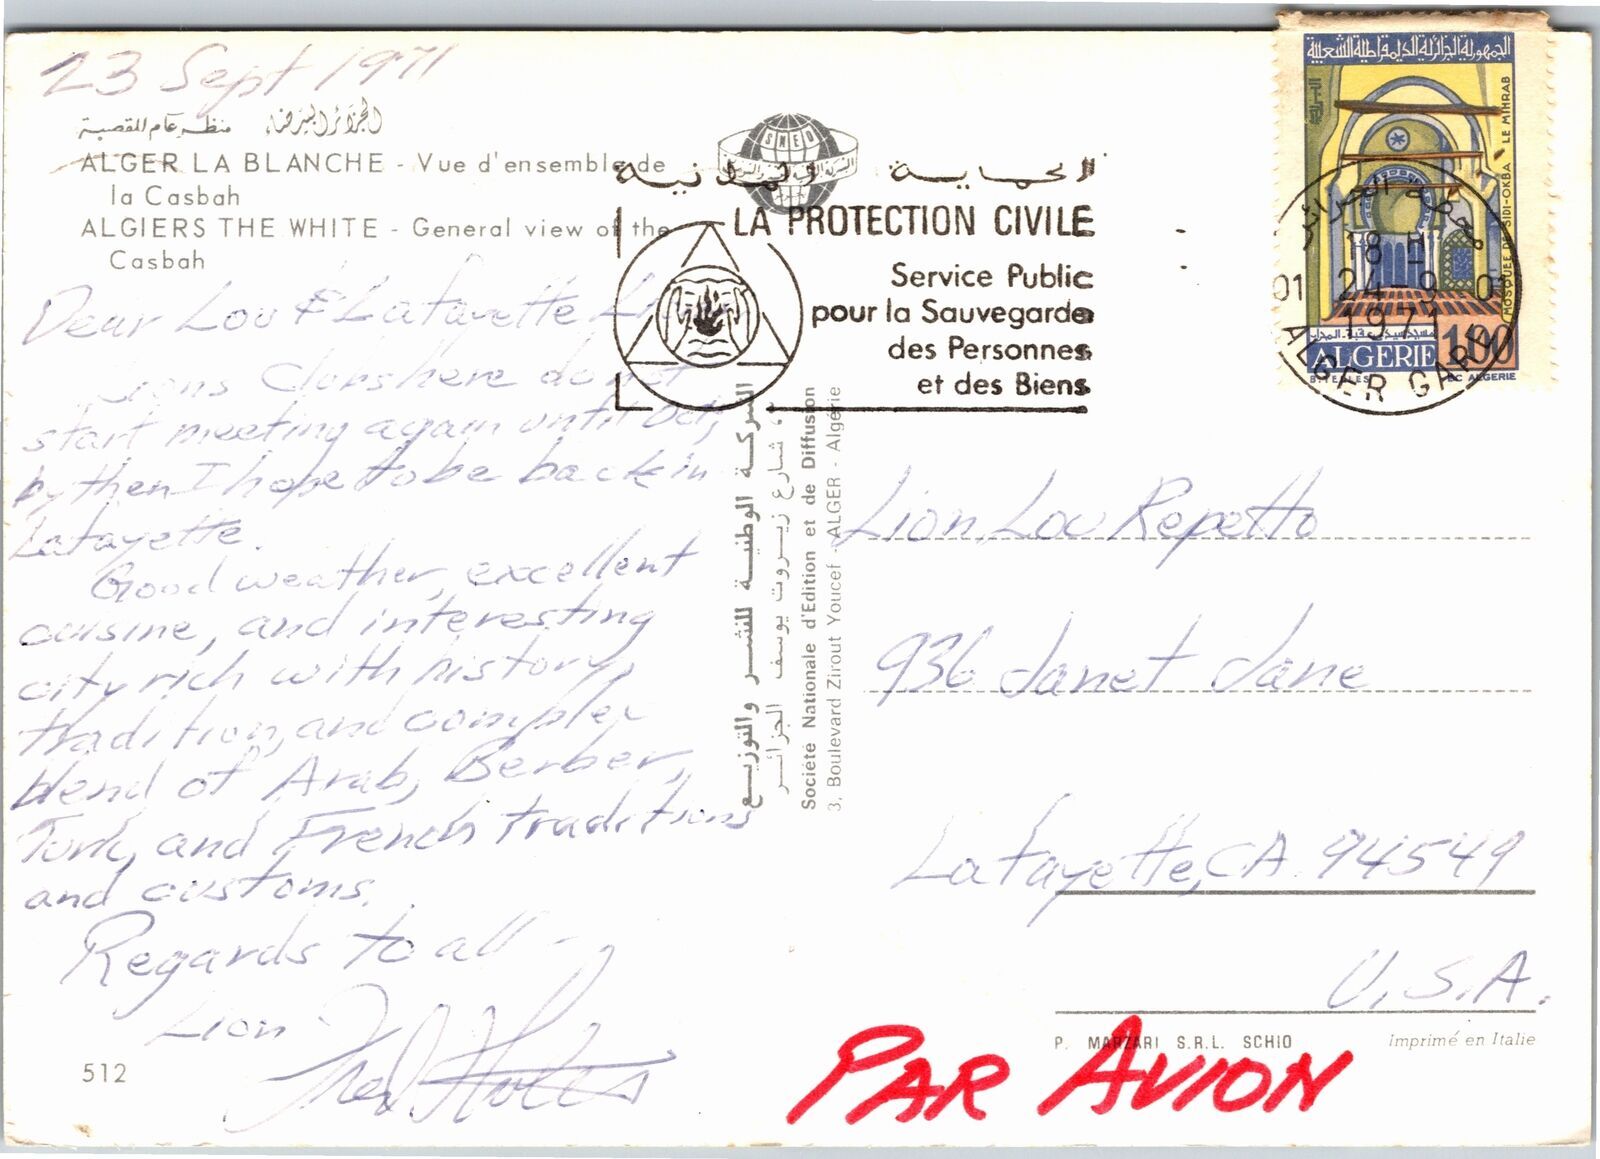 23 Sept 1971
الجزائر البيضاء منظر عام للقصبة
ALGER LA BLANCHE - Vue d'ensemble de
la Casbah
ALGIERS THE WHITE - General view of the
Casbah
Dear Lou & Lafayette
Lions Clubs here do not
start meeting again until Oct,
by then I hope to be back in
Lafayette.
Good weather, excellent
cuisine, and interesting
city rich with history,
tradition, and complex
blend of Arab, Berber,
Turk, and French traditions
and customs.
Regards to all -
Lion
512
SNED
الحماية المدنية
LA PROTECTION CIVILE
Service Public
pour la Sauvegarde
des Personnes
et des Biens
الشركة الوطنية للنشر والتوزيع
3، شارع زيروت يوسف الجزائر
Société Nationale d'Edition et de Diffusion
3, Boulevard Zirout Youcef - ALGER - Algérie
الجمهورية الجزائرية الديمقراطية الشعبية
البريد
MOSQUEE DE SIDI-OKBA LE MIHRAB
مسجد سيدي عقبة المحراب
ALGERIE 1,00
B. YELLES EC ALGERIE
محطة الجزائر
18-H
01 24-9 0
1971
ALGER GARE
Lion Lou Repetto
936 Janet Lane
Lafayette, CA. 94549
U.S.A.
P. MARZARI S.R.L. SCHIO Imprimé en Italie
PAR AVION